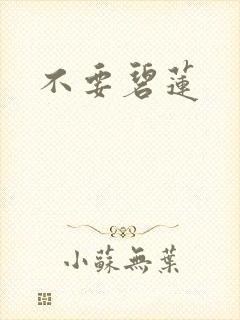 不要碧蓮
小蘇無葉